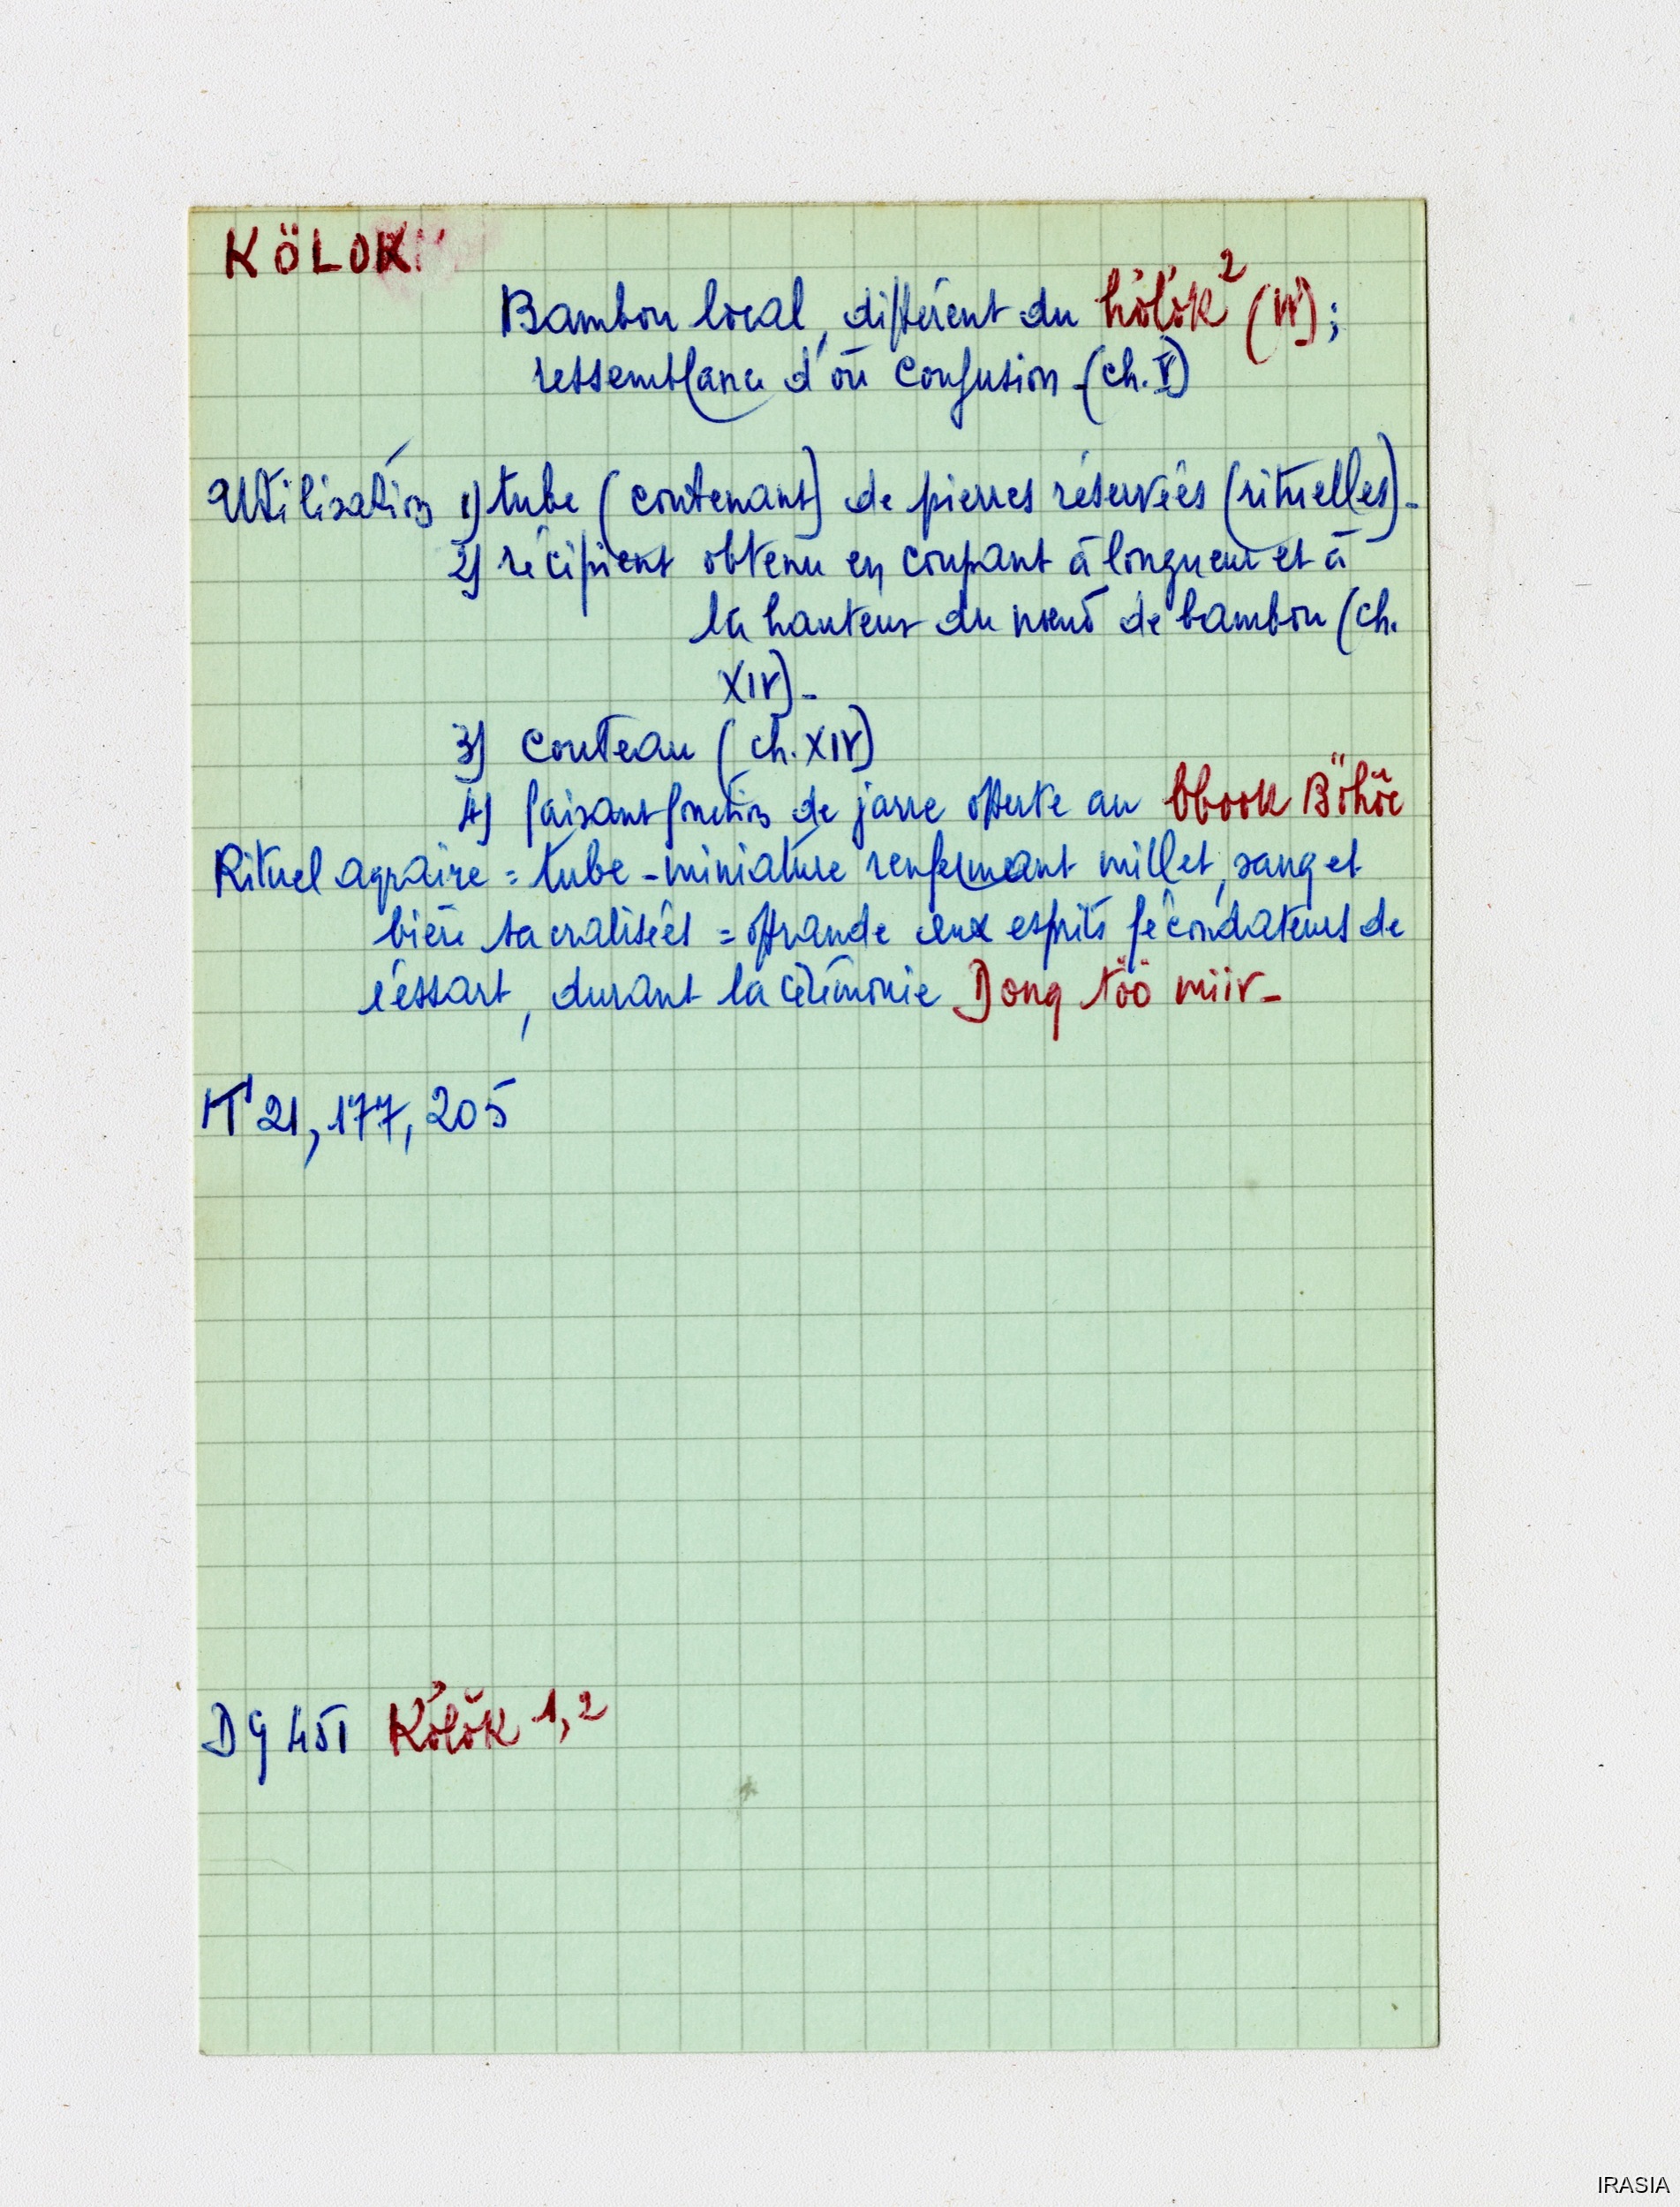 KÖLOK
Bambou local, différent du hölök² (W);
ressemblance d'où confusion (ch. V)
Utilisation 1) tube (contenant) de pierres réservées (rituelles).
2) récipient obtenu en coupant à longueur et à
la hauteur du nœud de bambou (ch.
XIV).
3) couteau (ch. XIV)
4) faisant fonction de jarre offerte au bbook Böhöe
Rituel agraire = tube-miniature renfermant millet, sang et
bière sacralisées = offrande aux esprits fécondateurs de
l'essart, durant la cérémonie Dong töö miir-
21, 177, 205
451 Kölök 1,2
IRASIA